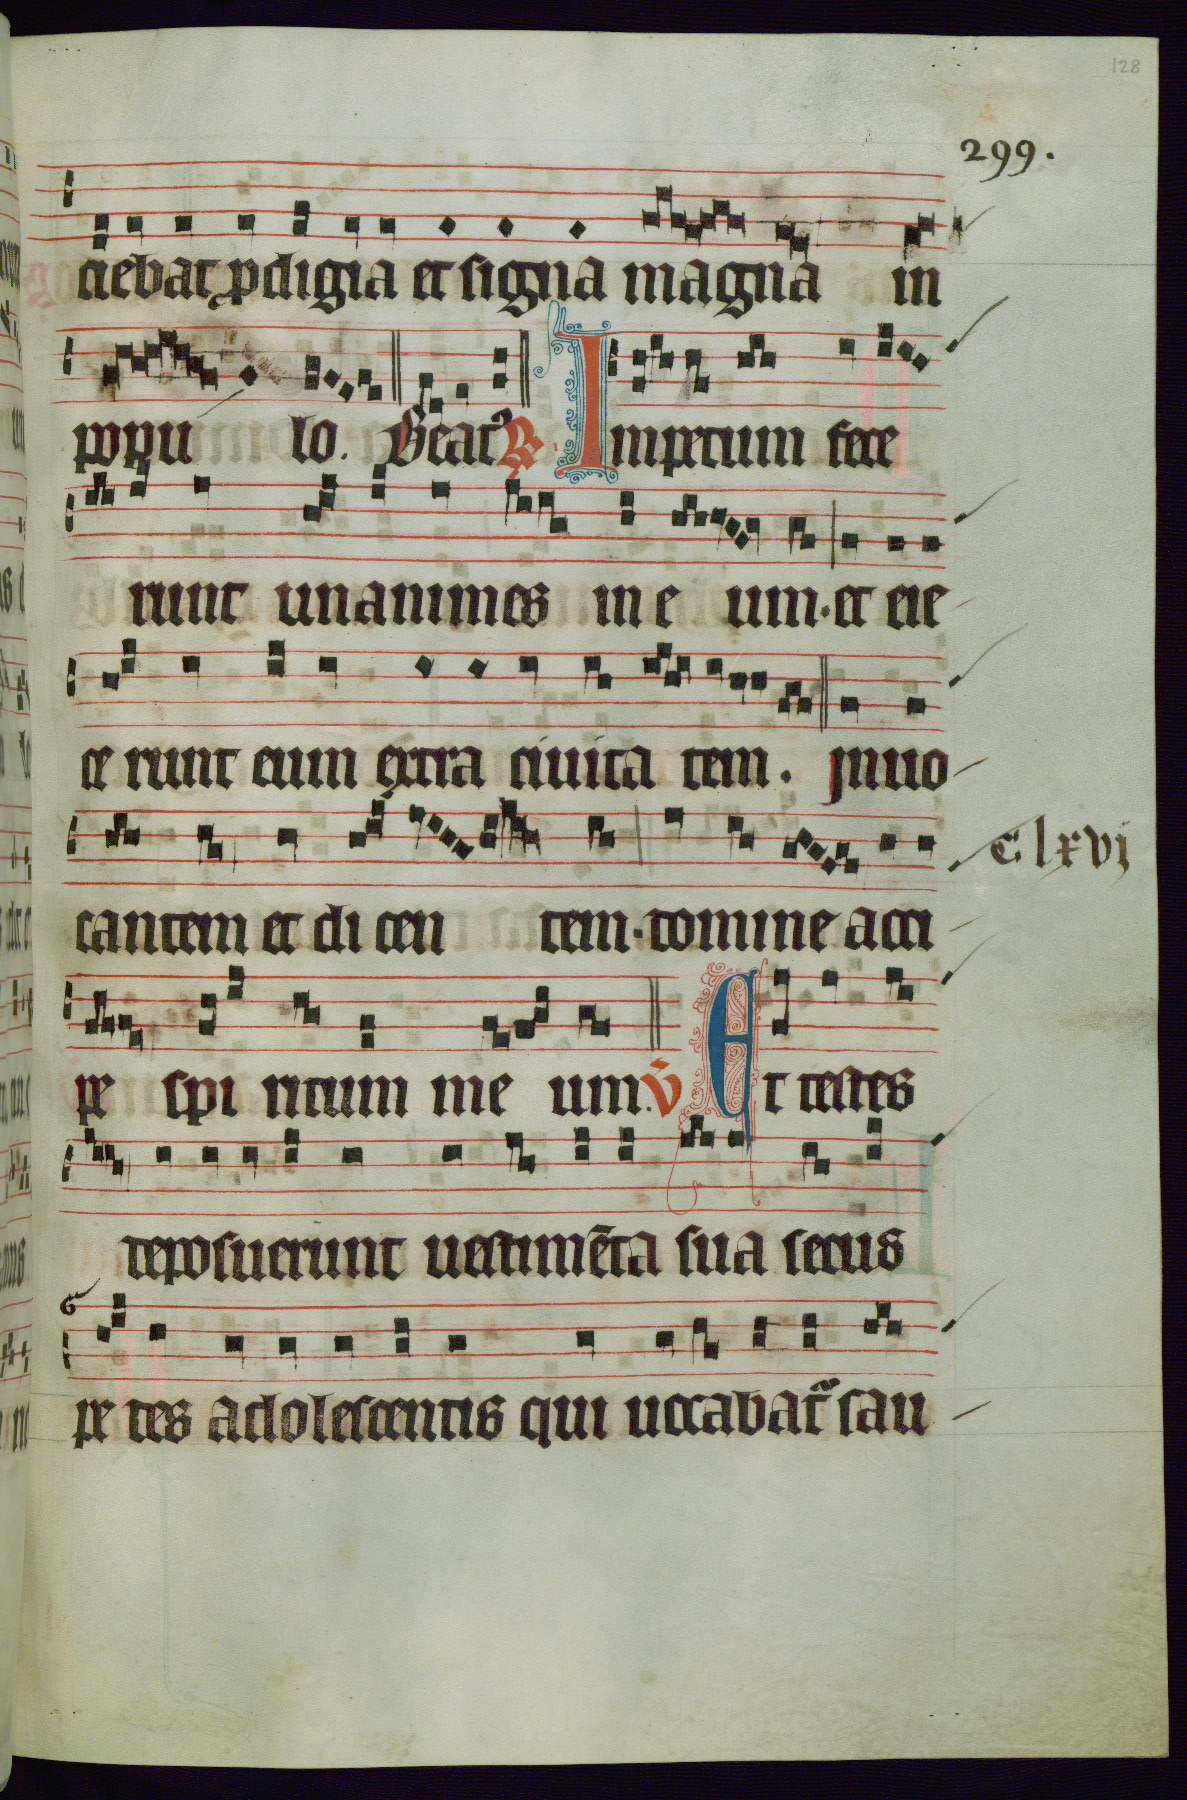 128
299.
ciebat pdigia et signa magna in
popu lo. Beat⁹ R. Impetum fece
runt unanimes in e um. et eie
ce runt eum extra ciuita tem. Inuo
C lxvj
cantem et di cen tem. domine acci
pe spi ritum me um. V Et testes
deposuerunt uestimēta sua secus
pe des adolescentis qui uocabat̃ sau